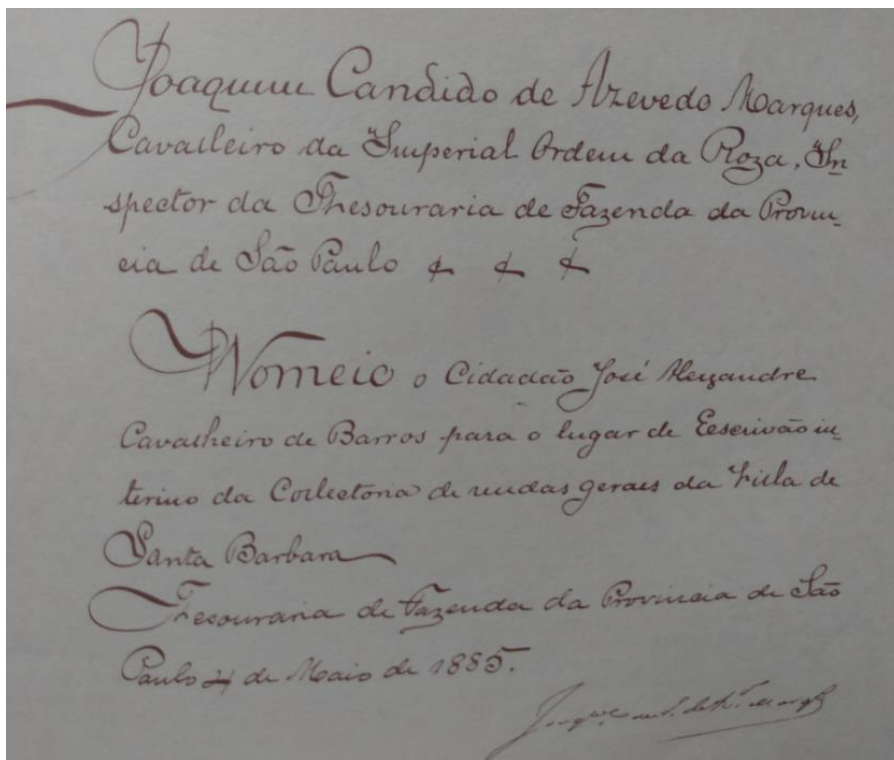 Joaquim Candido de Azevedo Marques,
Cavalleiro da Imperial Ordem da Roza, In
spector da Thesouraria de Fazenda da Provin-
cia de São Paulo
Nomeio o Cidadão José Alexandre
Cavalheiro de Barros para o lugar de Escrivão in-
terino da Collectoria de rendas geraes da Villa de
Santa Barbara
Thesouraria de Fazenda da Provincia de São
Paulo de Maio de 1885.